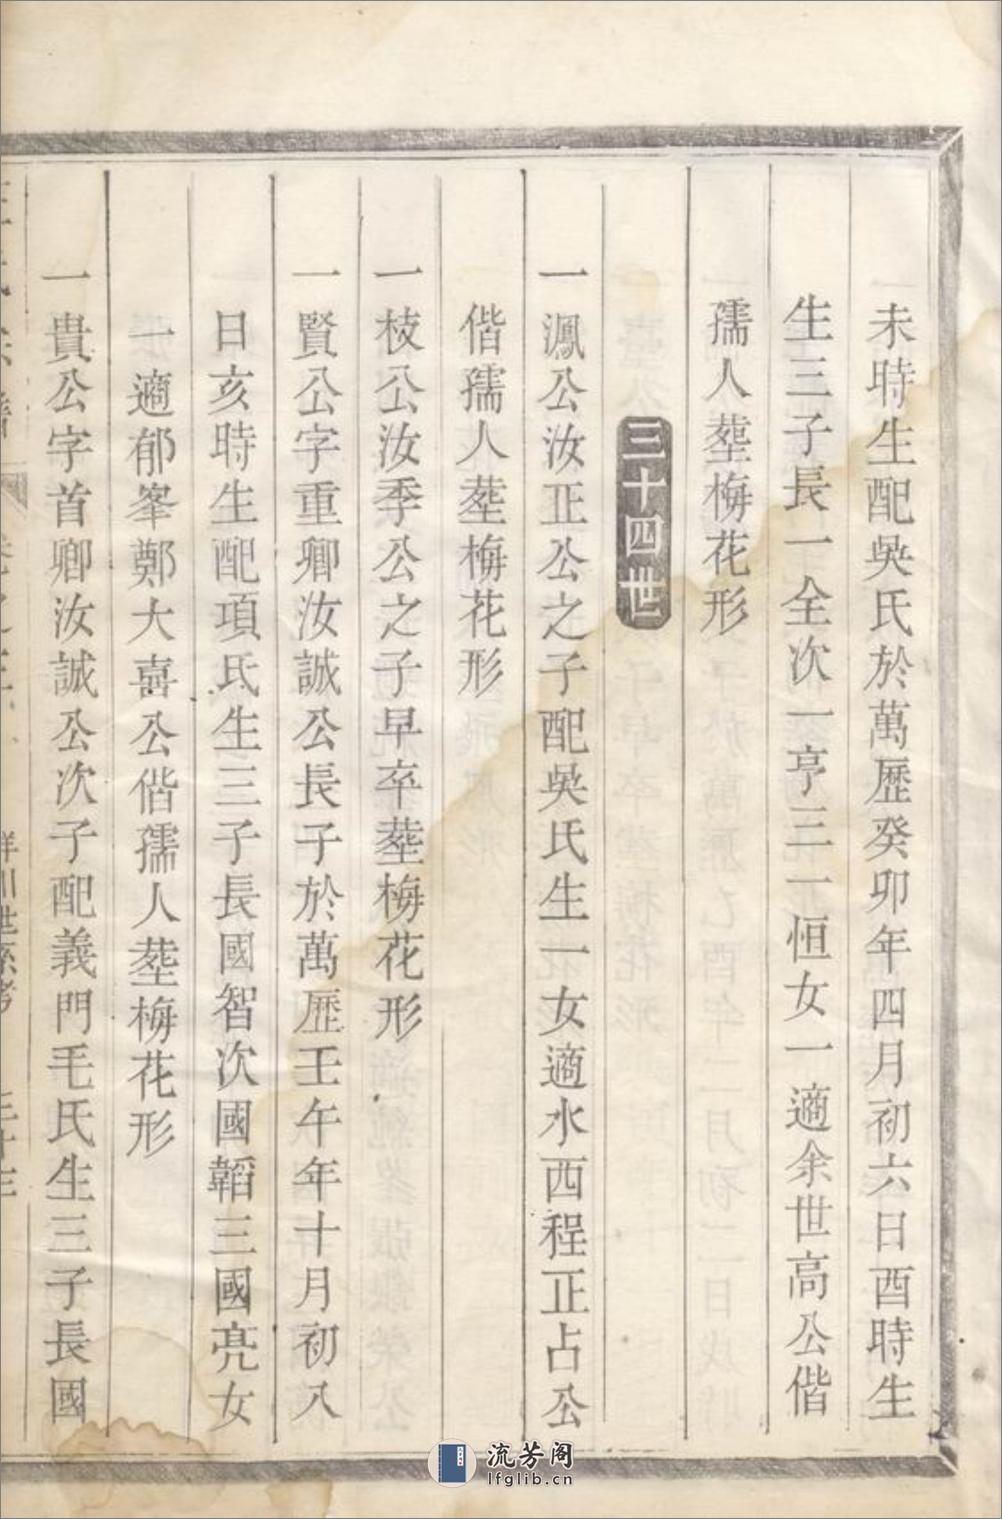 未時生配吳氏於萬歷癸卯年四月初六日酉時生
生三子長一全次一亨三一恒女一適余世高公偕
孺人塟梅花形
三十四世
一渢公汝正公之子配吳氏生一女適水西程正占公
偕孺人塟梅花形
一枝公汝季公之子早卒塟梅花形
一賢公字重卿汝誠公長子於萬歷壬午年十月初八
日亥時生配項氏生三子長國智次國韜三國亮女
一適郁峯鄭大喜公偕孺人塟梅花形
一貴公字首卿汝誠公次子配義門毛氏生三子長國
流芳阁
lfglib.cn